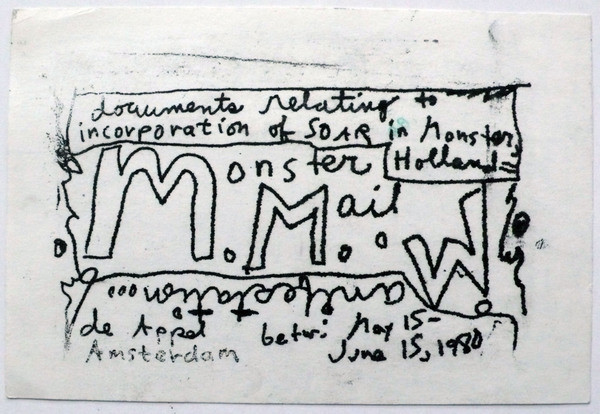 documents relating to
incorporation of SOAR in Monster,
Holland =
Monster
Mail
Manifestation...
de Appel betw: May 15-
Amsterdam June 15, 1980